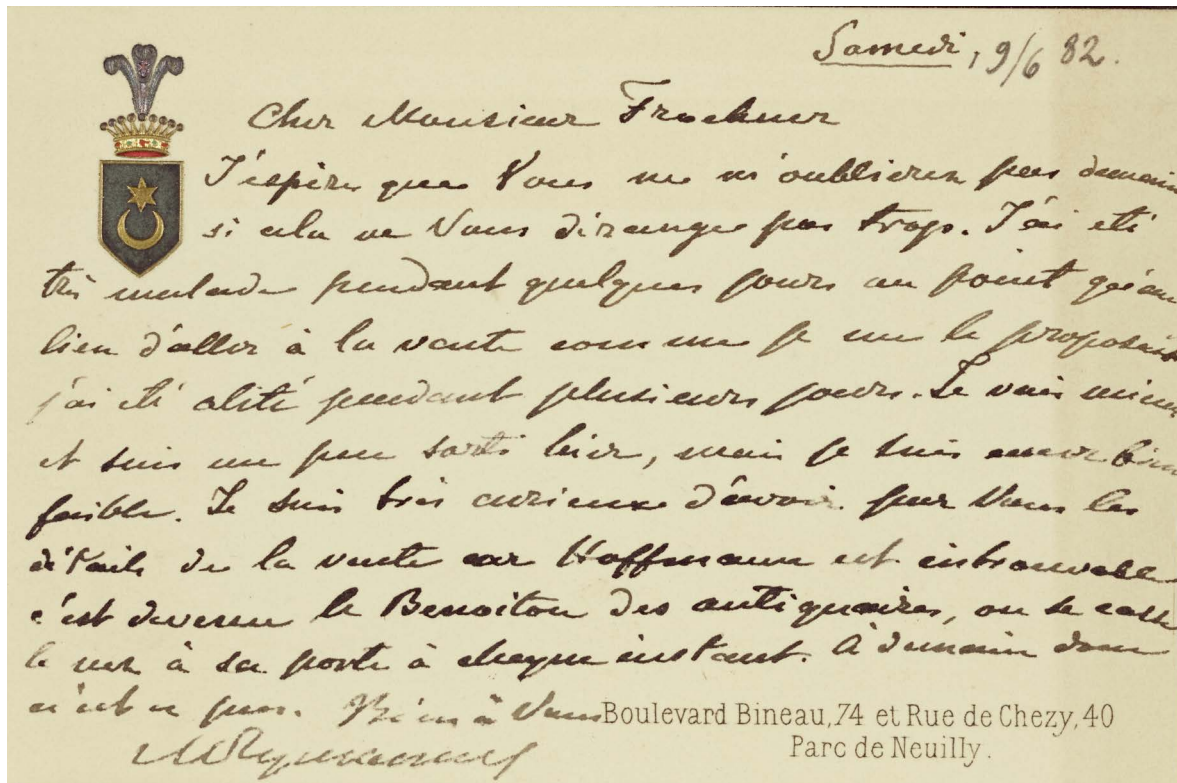 Samedi, 9/6 82.
Cher Monsieur Froehner
J'espère que Vous ne m'oublierez pas demain
si cela ne Vous dérange pas trop. J'ai été
très malade pendant quelques jours au point qu'au
lieu d'aller à la vente comme je me le proposais
j'ai été alité pendant plusieurs jours. Je vais mieux
et suis un peu sorti hier, mais je suis encore bien
faible. Je suis très curieux d'avoir par Vous les
détails de la vente car Hoffmann est introuvable
c'est devenu le Benoiton des antiquaires, on se casse
le nez à sa porte à chaque instant. A demain donc
n'est ce pas. Bien à Vous
Boulevard Bineau, 74 et Rue de Chezy, 40
Parc de Neuilly.